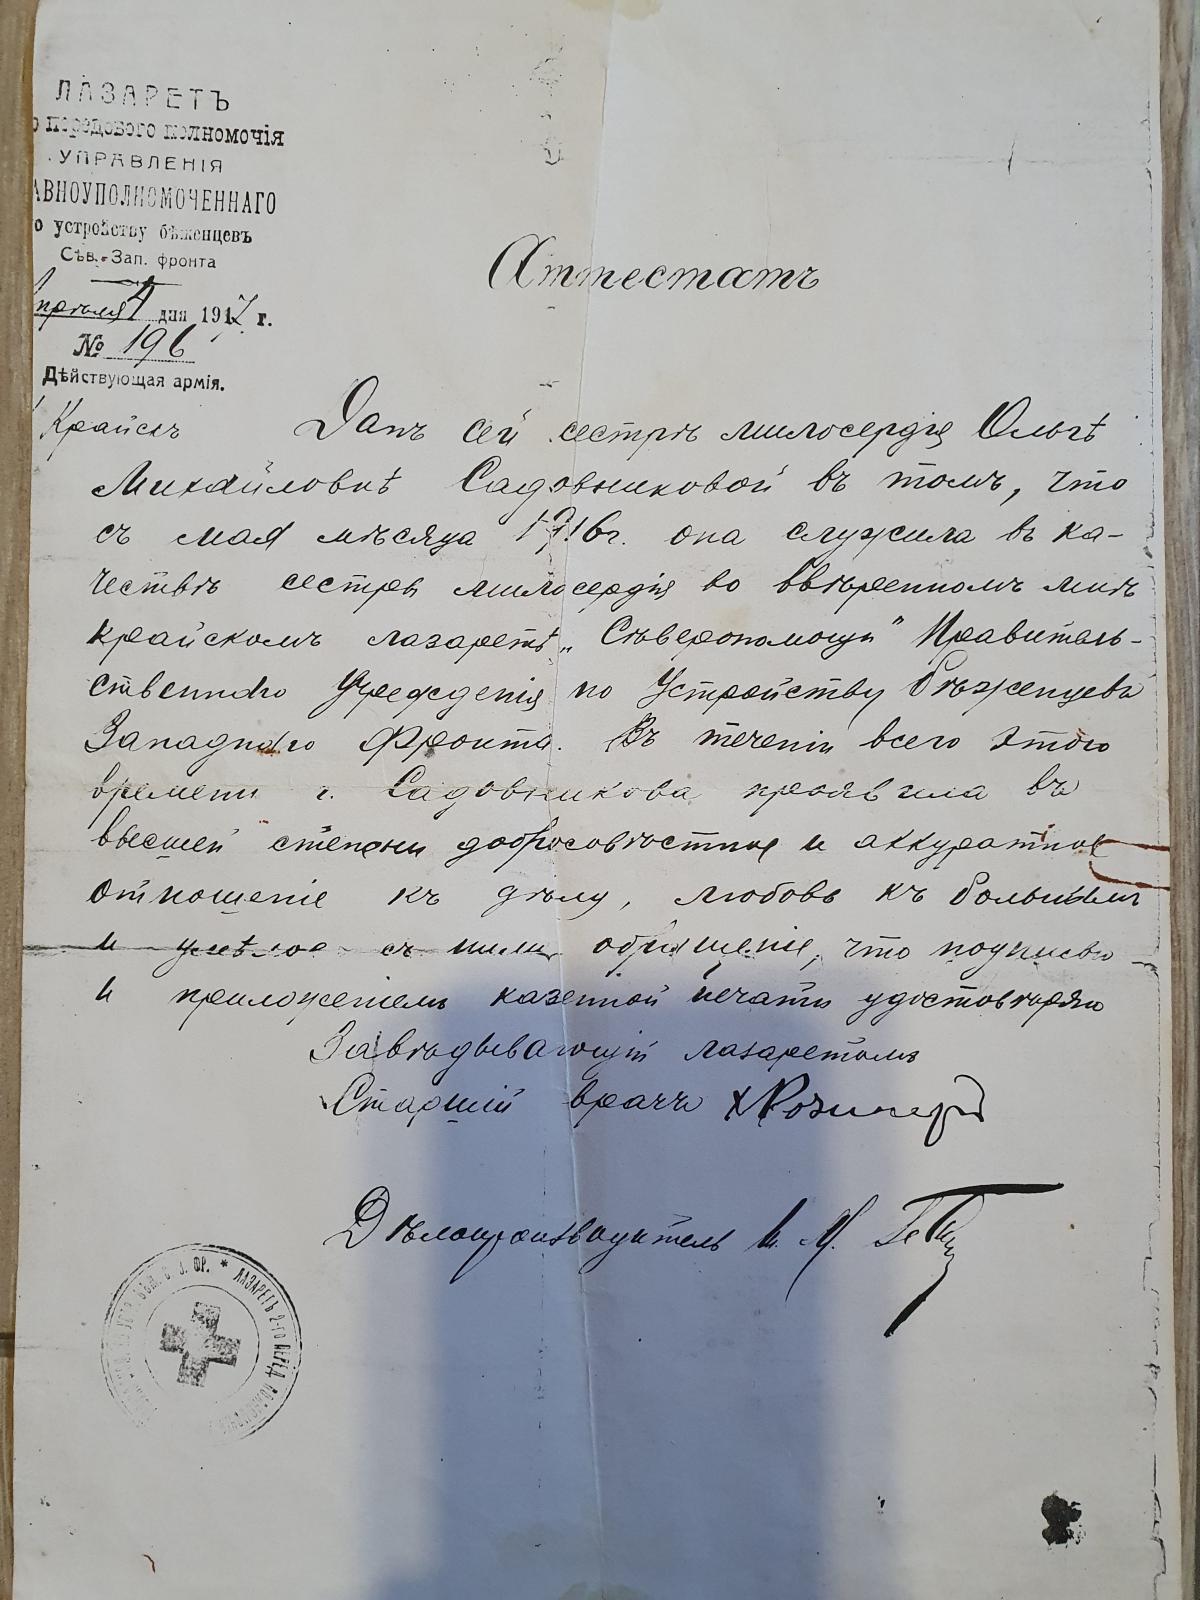 ЛАЗАРЕТЪ
передового полномочія
УПРАВЛЕНІЯ
АВНОУПОЛНОМОЧЕННАГО
о устройству бѣженцевъ
Сѣв.-Зап. фронта
прѣля 4 дня 1917 г.
№ 196
Дѣйствующая армія.
Крайскъ
Аттестатъ
Данъ сей сестрѣ милосердія Ольгѣ
Михайловнѣ Садовниковой въ томъ, что
съ мая мѣсяца 1916 г. она служила въ ка-
чествѣ сестры милосердія во ввѣренномъ мнѣ
крайскомъ лазаретѣ „Сѣверопомощи" Правитель-
ственнаго Учрежденія по Устройству Бѣженцевъ
Западнаго Фронта. Въ теченіи всего этого
времени г. Садовникова проявила въ
высшей степени добросовѣстное и аккуратное
отношеніе къ дѣлу, любовь къ больнымъ
и умѣлое съ ними обращеніе, что подписью
и приложеніемъ казенной печати удостовѣряю
Завѣдывающій лазаретомъ
Старшій врачъ
Дѣлопроизводитель М.
ЛАЗАРЕТЪ 2-ГО ПЕРЕД. ПОЛНОМОЧ
С. З. ФР. *